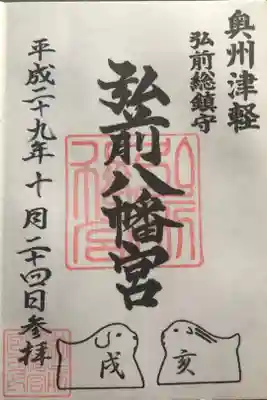 奥州津軽
弘前総鎮守
弘前八幡宮
平成二十九年十月二十四日参拝
戌
亥